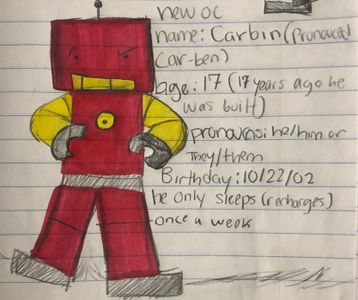 new oc
name: Carbin (pronouced
Car-ben)
age: 17 (17 years ago he
was built)
pronouns: he/him or
They/them
Birthday: 10/22/02
he only sleeps (recharges)
once a week